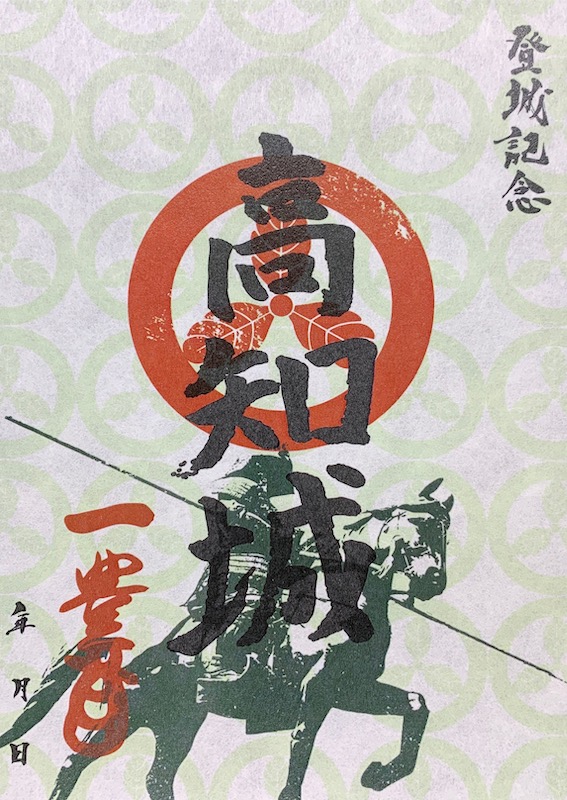 登城記念
高知城
一豊
年 月 日